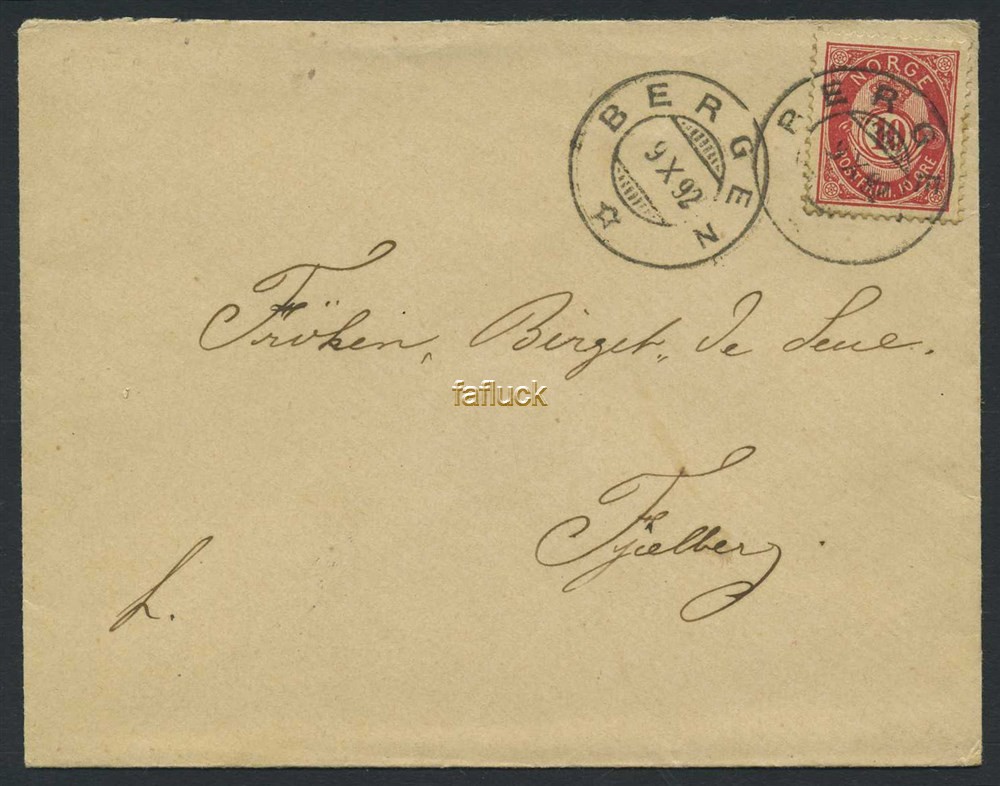 NORGE
10
POSTFRIM. 10 ØRE
BERGEN
9 X 92
BERGEN
Fröken, Birget, De Seue.
fafluck
Fjælberg.
h.